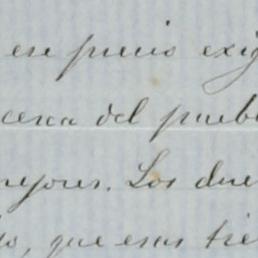 ese precio exig
cerca del puebl
mejores. Los due
, que esas tie